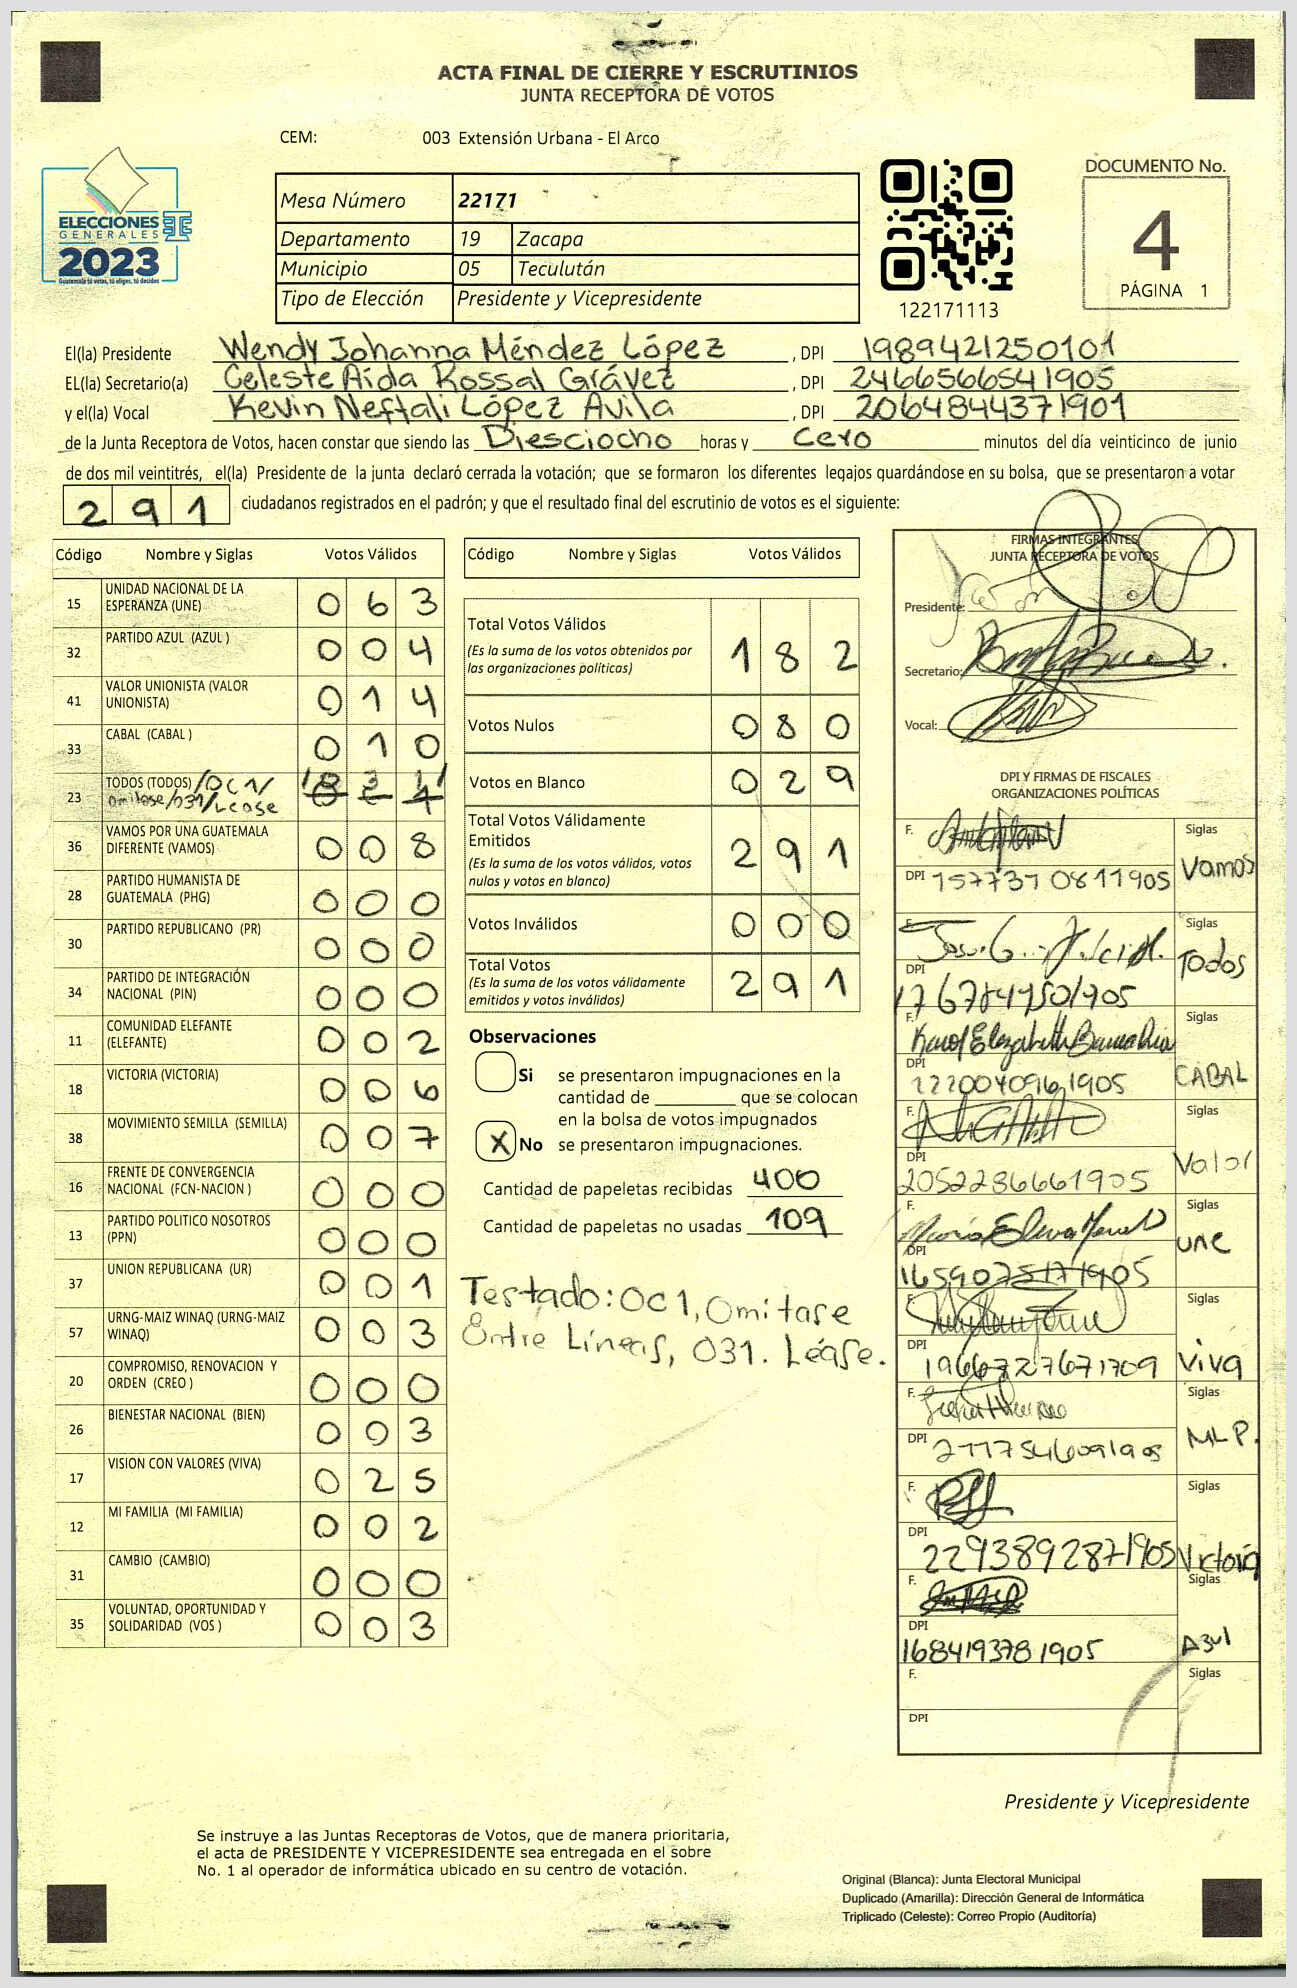 ACTA FINAL DE CIERRE Y ESCRUTINIOS
JUNTA RECEPTORA DE VOTOS
CEM: 003 Extensión Urbana - El Arco
ELECCIONES
GENERALES
2023
Guatemala tú votas, tú eliges, tú decides
TSE
Mesa Número 22171
Departamento 19 Zacapa
Municipio 05 Teculután
Tipo de Elección Presidente y Vicepresidente
122171113
DOCUMENTO No.
4
PÁGINA 1
El(la) Presidente Wendy Johanna Méndez López , DPI 1989421250101
EL(la) Secretario(a) Celeste Aída Rossal Grávez , DPI 2466566541905
y el(la) Vocal Kevin Neftali López Avila , DPI 2064844371901
de la Junta Receptora de Votos, hacen constar que siendo las Diesciocho horas y Cero minutos del día veinticinco de junio
de dos mil veintitrés, el(la) Presidente de la junta declaró cerrada la votación; que se formaron los diferentes legajos quardándose en su bolsa, que se presentaron a votar
291 ciudadanos registrados en el padrón; y que el resultado final del escrutinio de votos es el siguiente:
Código Nombre y Siglas Votos Válidos
15 UNIDAD NACIONAL DE LA ESPERANZA (UNE) 0 6 3
32 PARTIDO AZUL (AZUL ) 0 0 4
41 VALOR UNIONISTA (VALOR UNIONISTA) 0 1 4
33 CABAL (CABAL ) 0 1 0
23 TODOS (TODOS) /OC1/
Omitase/031/Léase
36 VAMOS POR UNA GUATEMALA DIFERENTE (VAMOS) 0 0 8
28 PARTIDO HUMANISTA DE GUATEMALA (PHG) 0 0 0
30 PARTIDO REPUBLICANO (PR) 0 0 0
34 PARTIDO DE INTEGRACIÓN NACIONAL (PIN) 0 0 0
11 COMUNIDAD ELEFANTE (ELEFANTE) 0 0 2
18 VICTORIA (VICTORIA) 0 0 6
38 MOVIMIENTO SEMILLA (SEMILLA) 0 0 7
16 FRENTE DE CONVERGENCIA NACIONAL (FCN-NACION ) 0 0 0
13 PARTIDO POLITICO NOSOTROS (PPN) 0 0 0
37 UNION REPUBLICANA (UR) 0 0 1
57 URNG-MAIZ WINAQ (URNG-MAIZ WINAQ) 0 0 3
20 COMPROMISO, RENOVACION Y ORDEN (CREO ) 0 0 0
26 BIENESTAR NACIONAL (BIEN) 0 0 3
17 VISION CON VALORES (VIVA) 0 2 5
12 MI FAMILIA (MI FAMILIA) 0 0 2
31 CAMBIO (CAMBIO) 0 0 0
35 VOLUNTAD, OPORTUNIDAD Y SOLIDARIDAD (VOS ) 0 0 3
Código Nombre y Siglas Votos Válidos
Total Votos Válidos
(Es la suma de los votos obtenidos por
las organizaciones políticas) 1 8 2
Votos Nulos 0 8 0
Votos en Blanco 0 2 9
Total Votos Válidamente
Emitidos
(Es la suma de los votos válidos, votos
nulos y votos en blanco) 2 9 1
Votos Inválidos 0 0 0
Total Votos
(Es la suma de los votos válidamente
emitidos y votos inválidos) 2 9 1
Observaciones
Si se presentaron impugnaciones en la
cantidad de ________ que se colocan
en la bolsa de votos impugnados
X No se presentaron impugnaciones.
Cantidad de papeletas recibidas 400
Cantidad de papeletas no usadas 109
Testado: OC1, Omitase
Entre Líneas, 031. Léase.
FIRMAS INTEGRANTES
JUNTA RECEPTORA DE VOTOS
Presidente:
Secretario:
Vocal:
DPI Y FIRMAS DE FISCALES
ORGANIZACIONES POLÍTICAS
F. Siglas
DPI 1577310811905 Vamos
F. Siglas
DPI Todos
F. Karol Elizabeth Siglas
DPI 2220040961905 CABAL
F. Siglas
DPI 2052286661905 Valor
F. María Elena Siglas
DPI 1659075171905 UNE
F. Siglas
DPI 1966727671709 Viva
F. Siglas
DPI 2117546091905 MLP.
F. Siglas
DPI 2293892871905 Victoria
F. Siglas
DPI 1684193781905 Azul
F. Siglas
DPI
Presidente y Vicepresidente
Se instruye a las Juntas Receptoras de Votos, que de manera prioritaria,
el acta de PRESIDENTE Y VICEPRESIDENTE sea entregada en el sobre
No. 1 al operador de informática ubicado en su centro de votación.
Original (Blanca): Junta Electoral Municipal
Duplicado (Amarilla): Dirección General de Informática
Triplicado (Celeste): Correo Propio (Auditoría)